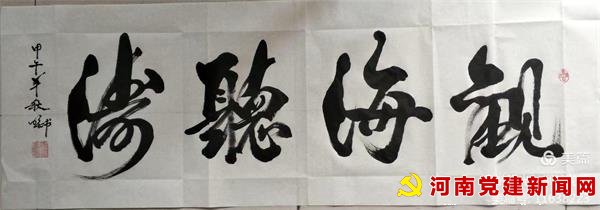 觀海聽濤
甲午年
美篇
河南党建新闻网